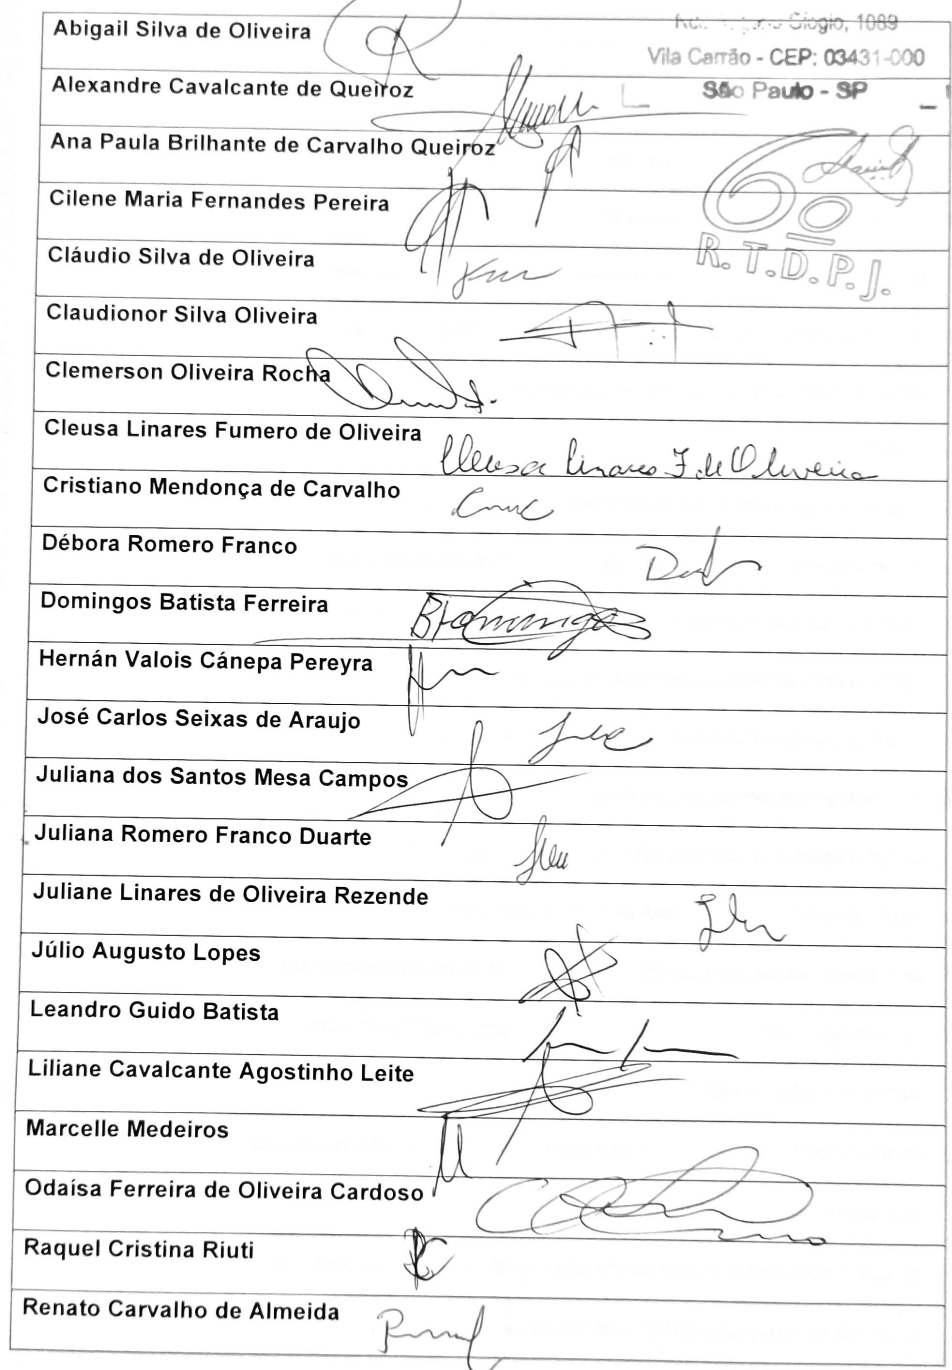 Abigail Silva de Oliveira
1089
Vila Carrão - CEP: 03431-000
Alexandre Cavalcante de Queiroz
São Paulo - SP
Ana Paula Brilhante de Carvalho Queiroz
6º
Cilene Maria Fernandes Pereira
R.T.D.P.J.
Cláudio Silva de Oliveira
Claudionor Silva Oliveira
Clemerson Oliveira Rocha
Cleusa Linares Fumero de Oliveira
Cleusa Linares F. de Oliveira
Cristiano Mendonça de Carvalho
Débora Romero Franco
Domingos Batista Ferreira
Hernán Valois Cánepa Pereyra
José Carlos Seixas de Araujo
Juliana dos Santos Mesa Campos
Juliana Romero Franco Duarte
Juliane Linares de Oliveira Rezende
Júlio Augusto Lopes
Leandro Guido Batista
Liliane Cavalcante Agostinho Leite
Marcelle Medeiros
Odaísa Ferreira de Oliveira Cardoso
Raquel Cristina Riuti
Renato Carvalho de Almeida